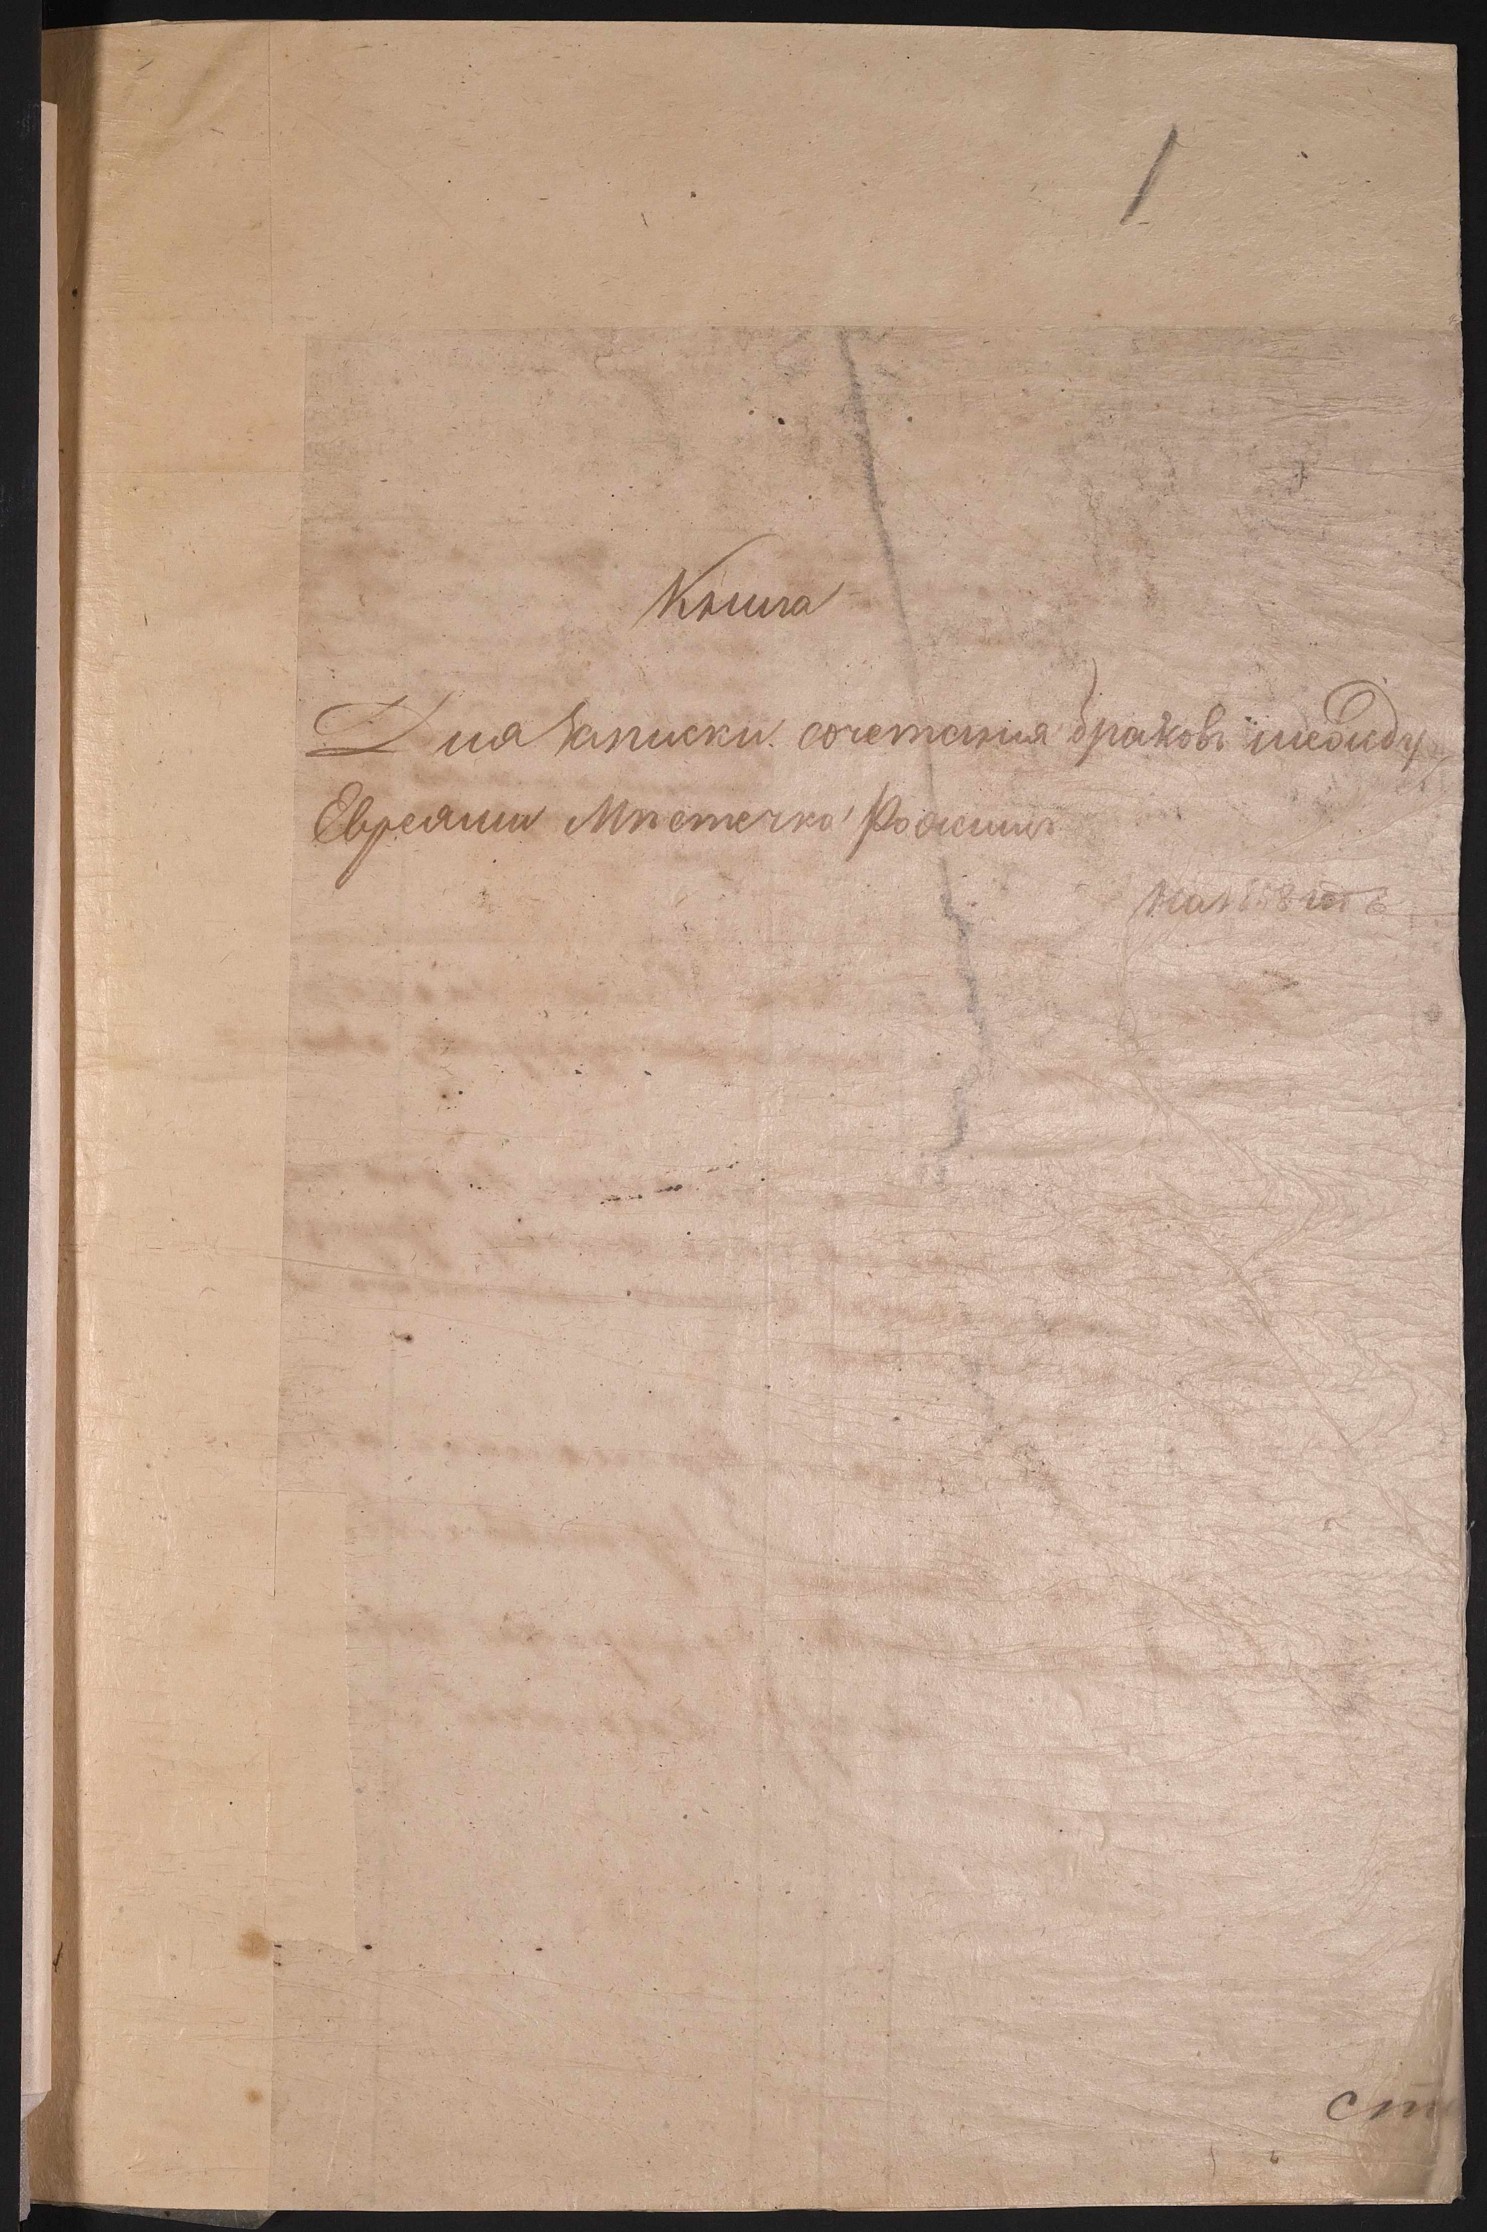 1
Книга
Для записки сочетания браковъ между
Евреями Мѣстечка Ро
На 1858 годъ
ст